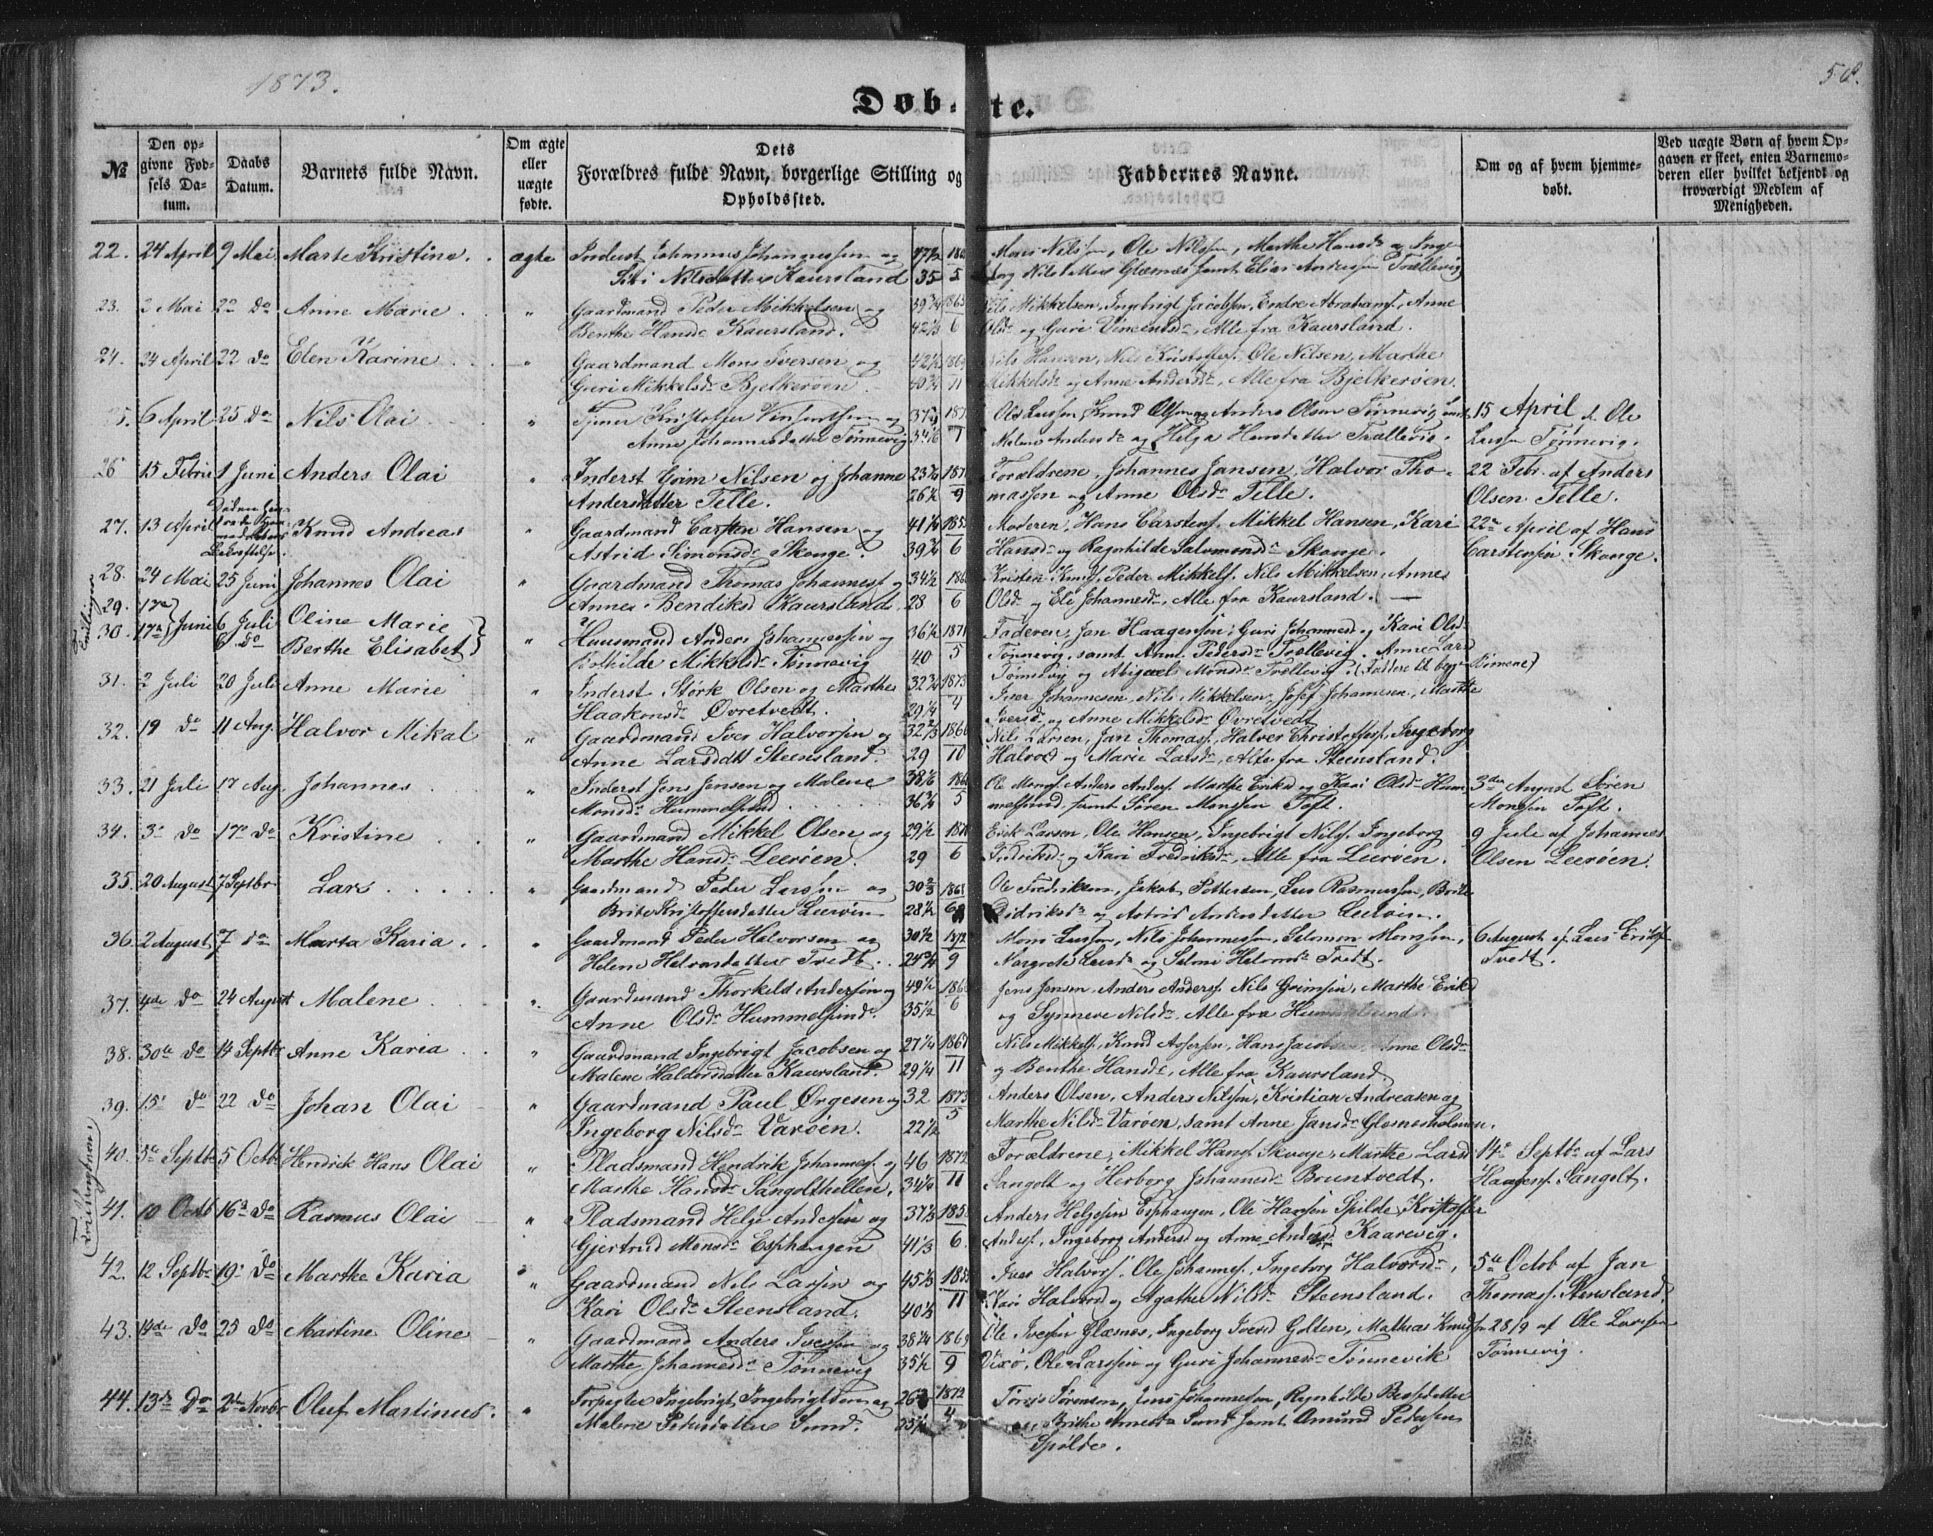 1873.
58.
Døbte.
№
Den opgivne Fødsels Datum.
Daabs Datum.
Barnets fulde Navn.
Om ægte eller uægte fødte.
Dets Forældres fulde Navn, borgerlige Stilling og Opholdssted.
Faddernes Navne.
Om og af hvem hjemmedøbt.
Ved uægte Børn af hvem Opgaven er skeet, enten Barnemoderen eller hvilket bekjendt og troværdigt Medlem af Menigheden.
22. 24 April 9 Mai Marte Kristine. ægte Inderst Johannes Johannessen og
Siri Nilsdatter Kaursland 35 5
Mons Nilssen, Ole Nilssen, Marthe Hansd. og Inge-
borg Nilsd. Glæsnes samt Elias Andersen Trællevig
23. 2 Mai 22 do Anne Marie " Gaardmand Peder Mikkelsen og 39 3/4
Benthe Hansd. Kaursland. 6
Nils Mikkelsen, Ingebrigt Jacobsen, Endre Abrahams., Anne
Olsd. og Guri Vincentsd., Alle fra Kaursland.
24. 24 April 22 do Elen Karine " Gaardmand Mons Iversen og 42 1/2
Guri Mikkelsd. Bjelkerøen 40 3/4 11
Nils Hansen, Nils Kristoffers. Ole Nilsen, Marthe
Mikkelsd. og Anne Andersd., Alle fra Bjelkerøen.
25. 6 April 25 do Nils Olai "
Anne Johannesdatter Tønnevig 7
Ole Larssen, Knud Olsen og Anders Olsen Tønnevig samt
Malene Andersd. og Helga Hansdatter Trællevig.
15 April d. Ole
Larssen Tønnevig.
26 15 Febru 1 Juni Anders Olai " Inderst Grim Nilsen og Johanne
Andersdatter Telle. 9
Forældrene, Johannes Jansen, Halvor Tho-
massen og Anne Olsd. Telle.
22 Febr. af Anders
Olsen Telle.
27. 13 April Knud Andreas " Gaardmand Carsten Hansen og
Astrid Simonsd. Skonge. 39 3/4 6
Moderen, Hans Carstens. Mikkel Hansen, Kari
Hansd. og Ragnhilde Salomonsd. Skonge.
22 April af Hans
Carstensen Skonge.
28. 24 Mai 25 Juni Johannes Olai " Gaardmand Thomas Johanness. og 34 1/2
Anne Bendiksd. Kaursland 28 6
Kristen Knuds. Peder Mikkels. Nils Mikkelsen, Anne
Olsd. og Eli Johannesd., Alle fra Kaursland.
Tvillinger
29. 17de Juni 6 Juli Oline Marie
30. 17de 6 do Berthe Elisabet " Huusmand Anders Johannessen og 36 1/2 1871
Bothilde Mikkelsd. Tønnevig 40 5
Faderen, Jan Haagensen, Guri Johannesd. og Kari Olsd.
Tønnevig, samt Ann. Pedersd. Trællevig. Anne Larsd.
Tønnevig og Abigael Monsd. Trællevig (Faddere til begge Børnene)
31. 2 Juli 20 Juli Anne Marie " Inderst Størk Olsen og Marthe 32 3/4 1873
Haakonsd. Øvretvedt. 29 1/4 4
Iver Johannesen, Nils Mikkelsen, Josef Johannesen, Marthe
Iversd. og Anne Mikkelsd. Øvretvedt
32. 19 do 11 Aug. Halvor Mikal " Gaardmand Iver Halvorsen og 32 2/3
Anne Larsddtr Steensland. 29 10
Nils Larsen, Jan Thomass. Halvor Christoffers. Ingeborg
Halvord og Marie Larsd., Alle fra Steensland.
33. 21 Juli 17 Aug. Johannes " Inderst Jens Jensen og Malene
Monsd. Hummelsund 5
Ole Mons. Anders Anders. Marthe Eriksd. og Kari Olsd. Hum-
melsund, samt Søren Monssen Toft.
3die August Søren
Monssen Toft.
34. 3 do 17 do Kristine " Gaardmand Mikkel Olsen og 29 1/2
Marthe Hansd. Leerøen. 29 6
Erik Larsen, Ole Hansen, Ingebrigt Nils. Ingeborg
Fredriksd. og Kari Fredriksd., Alle fra Leerøen.
9 Juli af Johannes
Olsen Leerøen.
35. 20 August 7 Septbr Lars " Gaardmand Peder Larssen og 30 2/3
Brite Kristoffersdatter Leerøen 28 1/2
Ole Fredriksen, Jakob Pettersen, Lars Rasmussen, Brite
Didriksd. og Astrid Andersdatter Leerøen.
36. 2 August 7 do Marta Karia " Gaardmand Peder Halvorsen og 30 1/2 1872
Helene Halvorsdatter Tvedt. 9
Mons Larssen, Nils Johannessen, Salomon Monssen,
Margrete Larsd. og Selmi Halvorsd. Tvedt.
6 August af Lars Eriks.
Tvedt.
37. 4de do 24 August Malene " Gaardmand Thorkeld Andersen og 49 1/2
Anne Olsd. Hummelsund. 35 1/2 6
Jens Jensen, Anders Anders. Nils Grimsen, Marthe Eriksd.
og Synneve Nilsd., Alle fra Hummelsund.
38. 30te do 14 Septbr Anne Karia " Gaardmand Ingebrigt Jacobsen og 27 1/4 1867
Malene Haldorsdatter Kaursland. 29 1/4 11
Nils Mikkels. Knud Assersen, Hans Jacobsen Anne Olsd.
og Benthe Hansd., Alle fra Kaursland.
39. 15 do 22 do Johan Olai " Gaardmand Paul Ørgesen og 32 1873
Ingeborg Nilsd. Varøen. 22 1/2 5
Anders Olsen, Anders Nilsen, Kristian Andreasen og
Marthe Nilsd. Varøen, samt Anne Jansd. Glesnesholmen.
40. 5te Septbr 5 Octbr Hendrik Hans Olai " Pladsmand Hendrik Johanness. og 46 1872
Marthe Hansd. Sangolthellen. 34 1/4 11
Forældrene, Mikkel Hans. Skoge, Marthe Larsd.
Sangolt og Herborg Johannesd. Bruntvedt.
14 Septbr af Lars
Haagens. Sangolt.
41. 10 Octb 16 do Rasmus Olai " Pladsmand Helge Andersen og 37 1/3
Gjertrud Monsd. Esphaugen 41 1/3 6
Anders Helgesen Esphaugen, Ole Hansen Spilde, Kristoffer
Anders. Ingeborg Andersd. og Anne Andersd. Kaarevig.
42. 12 Septbr 19 do Marthe Karia " Gaardmand Nils Larsen og 45 1/3
Kari Olsd. Steensland. 40 1/3 11
Iver Halvors. Ole Johannes. Ingeborg Halvorsd.,
Kari Halvord og Agathe Nilsd. Steensland.
5te Octob af Jan
Thomass. Stensland.
43. 14de do 25 do Martine Oline " Gaardmand Anders Iversen og 38 1/4 1869
Marthe Johannesd. Tønnevig 35 1/2 9
Ole Iversen Glæsnes, Ingeborg Iversd. Golten, Mathias Knudsen
Vixø, Ole Larssen og Guri Johannesd. Tønnevik
28/9 af Ole Larssen
Tønnevig.
44. 13 do 2 Novbr Oluf Martinus. " Forpagter Ingebrigt Ingebrigtsen og 26 1872
Malene Pedersdatter Sund. 4
Johannessen,
Sund samt Amund Pedersen
Spilde.